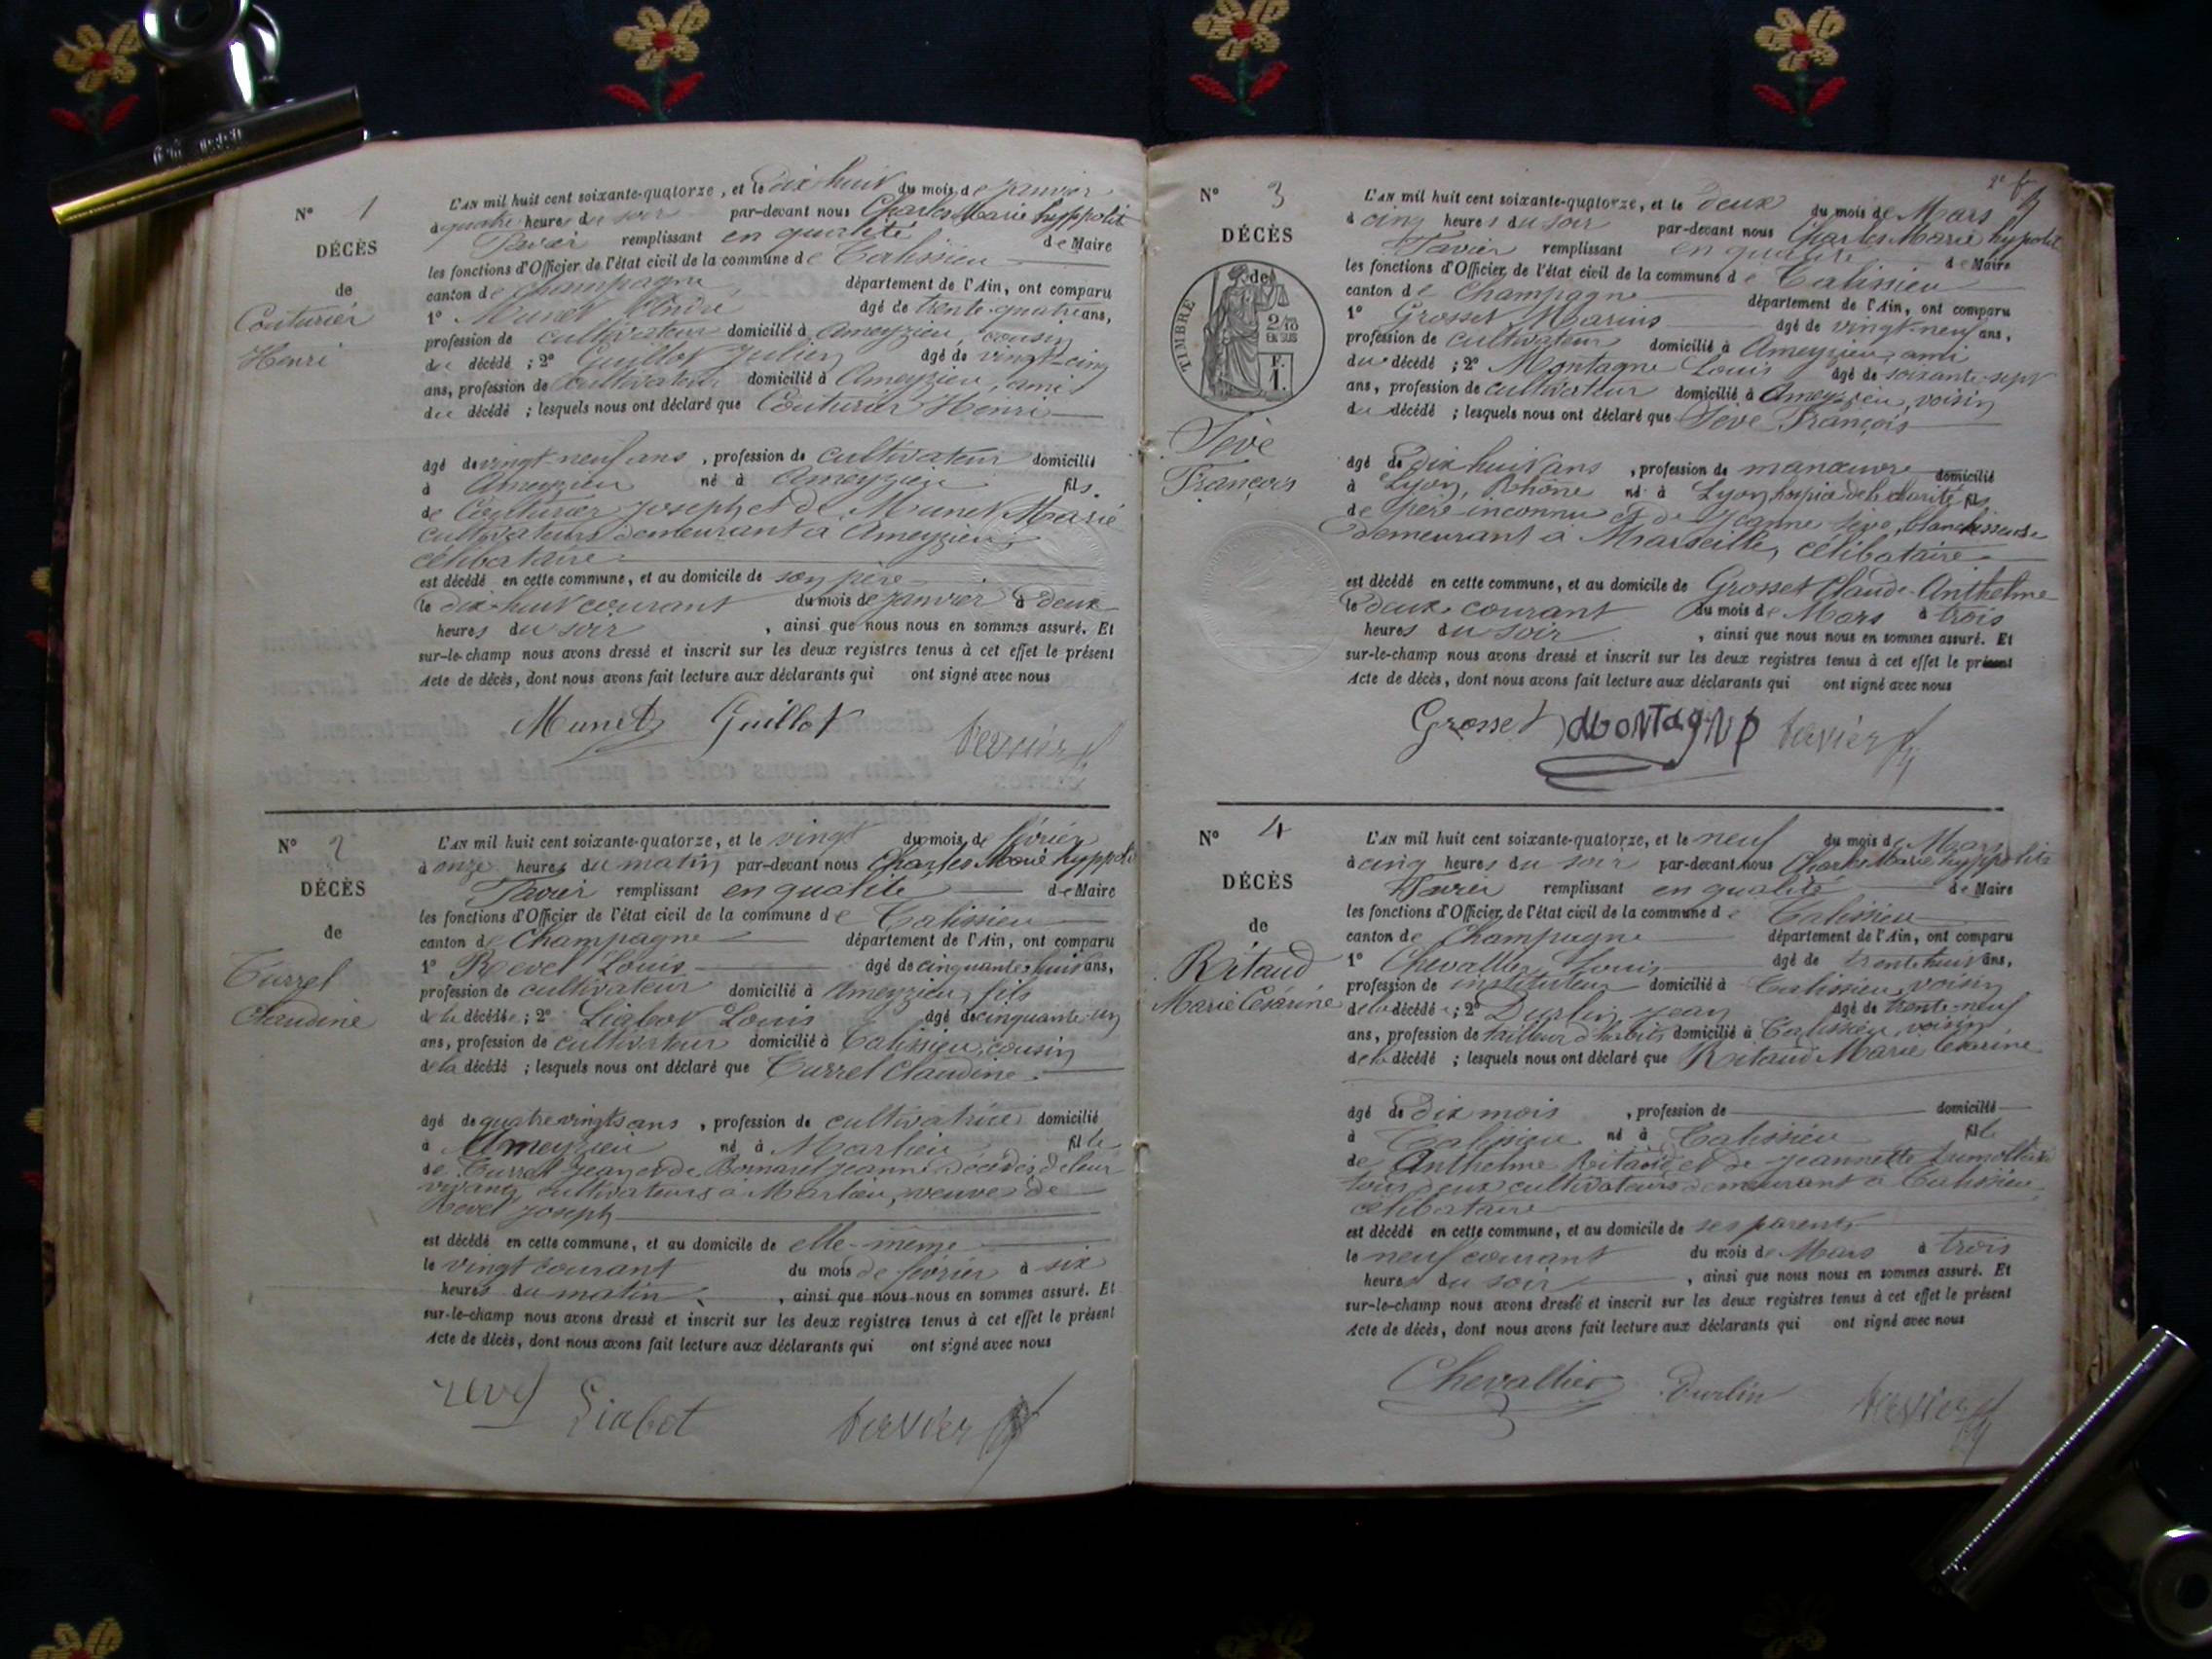 N° 1
DÉCÈS
de
Couturier
Henri
L'AN mil huit cent soixante-quatorze, et le dix huit du mois de janvier
à quatre heures du soir par-devant nous Charles Marie hyppolit
Tavier remplissant en qualité de Maire
les fonctions d'Officier de l'état civil de la commune de Talissieu
canton de Champagne, département de l'Ain, ont comparu
1° Munet André âgé de trente-quatre ans,
profession de cultivateur domicilié à Ameyzieu, cousin
du décédé ; 2° Guillot Julien âgé de vingt-cinq
ans, profession de cultivateur domicilié à Ameyzieu, ami
du décédé ; lesquels nous ont déclaré que Couturier Henri
âgé de vingt-neuf ans, profession de cultivateur domicilié
à Ameyzieu né à Ameyzieu fils
de Couturier Joseph et de Munet Marie
cultivateurs demeurant à Ameyzieu,
célibataire
est décédé en cette commune, et au domicile de son père
le dix-huit courant du mois de janvier à deux
heures du soir, ainsi que nous nous en sommes assuré. Et
sur-le-champ nous avons dressé et inscrit sur les deux registres tenus à cet effet le présent
Acte de décès, dont nous avons fait lecture aux déclarants qui ont signé avec nous
Munet Guillot tavier
N° 2
DÉCÈS
de
Turrel
Claudine
L'AN mil huit cent soixante-quatorze, et le vingt du mois de février
à onze heures du matin par-devant nous Charles Marie hyppolit
Tavier remplissant en qualité de Maire
les fonctions d'Officier de l'état civil de la commune de Talissieu
canton de Champagne département de l'Ain, ont comparu
1° Revel Louis âgé de cinquante huit ans,
profession de cultivateur domicilié à Ameyzieu, fils
de la décédée ; 2° Liabot Louis âgé de cinquante-un
ans, profession de cultivateur domicilié à Talissieu, cousin
de la décédé ; lesquels nous ont déclaré que Turrel Claudine
âgé de quatre vingts ans, profession de cultivatrice domicilié
à Ameyzieu né à Marlieu fille
de Turrel Jean et de Jeanne décédés de leur
vivant cultivateurs à Marlieu, veuve de
Revel Joseph
est décédé en cette commune, et au domicile de elle-même
le vingt courant du mois de février à six
heures du matin, ainsi que nous nous en sommes assuré. Et
sur-le-champ nous avons dressé et inscrit sur les deux registres tenus à cet effet le présent
Acte de décès, dont nous avons fait lecture aux déclarants qui ont signé avec nous
revel Liabot tavier
N° 3
DÉCÈS
de
TIMBRE
2/10
EN SUS
F.
1.
Sève
François
L'AN mil huit cent soixante-quatorze, et le deux du mois de Mars
à cinq heures du soir par-devant nous Charles Marie hypolit
Tavier remplissant en qualité de Maire
les fonctions d'Officier de l'état civil de la commune de Talissieu
canton de Champagne département de l'Ain, ont comparu
1° Grosset Marius âgé de vingt neuf ans,
profession de cultivateur domicilié à Ameyzieu, ami
du décédé ; 2° Montagne Louis âgé de soixante-sept
ans, profession de cultivateur domicilié à Ameyzieu, voisin
du décédé ; lesquels nous ont déclaré que Sève François
âgé de dix huit ans, profession de manœuvre domicilié
à Lyon, Rhône né à Lyon hospice de la charité, fils
de père inconnu et de Jeanne Sève, blanchisseuse
demeurant à Marseille, célibataire
est décédé en cette commune, et au domicile de Grosset Claude-Anthelme
le deux courant du mois de Mars à trois
heures du soir, ainsi que nous nous en sommes assuré. Et
sur-le-champ nous avons dressé et inscrit sur les deux registres tenus à cet effet le présent
Acte de décès, dont nous avons fait lecture aux déclarants qui ont signé avec nous
Grosset Montagne tavier
N° 4
DÉCÈS
de
Ritaud
Marie Césarine
L'AN mil huit cent soixante-quatorze, et le neuf du mois de Mars
à cinq heures du soir par-devant nous Charles Marie hyppolite
Tavier remplissant en qualité de Maire
les fonctions d'Officier de l'état civil de la commune de Talissieu
canton de Champagne département de l'Ain, ont comparu
1° Chevallier Louis âgé de trente huit ans,
profession de instituteur domicilié à Talissieu, voisin
de la décédé ; 2° Durlin Jean âgé de trente-neuf
ans, profession de tailleur d'habits domicilié à Talissieu voisin
de la décédé ; lesquels nous ont déclaré que Ritaud Marie Césarine
âgé de dix mois, profession de domicilié
à Talissieu né à Talissieu fille
de Anthelme Ritaud et de Jeannette
tous deux cultivateurs demeurant à Talissieu,
célibataire
est décédé en cette commune, et au domicile de ses parents
le neuf courant du mois de Mars à trois
heures du soir, ainsi que nous nous en sommes assuré. Et
sur-le-champ nous avons dressé et inscrit sur les deux registres tenus à cet effet le présent
Acte de décès, dont nous avons fait lecture aux déclarants qui ont signé avec nous
Chevallier Durlin tavier